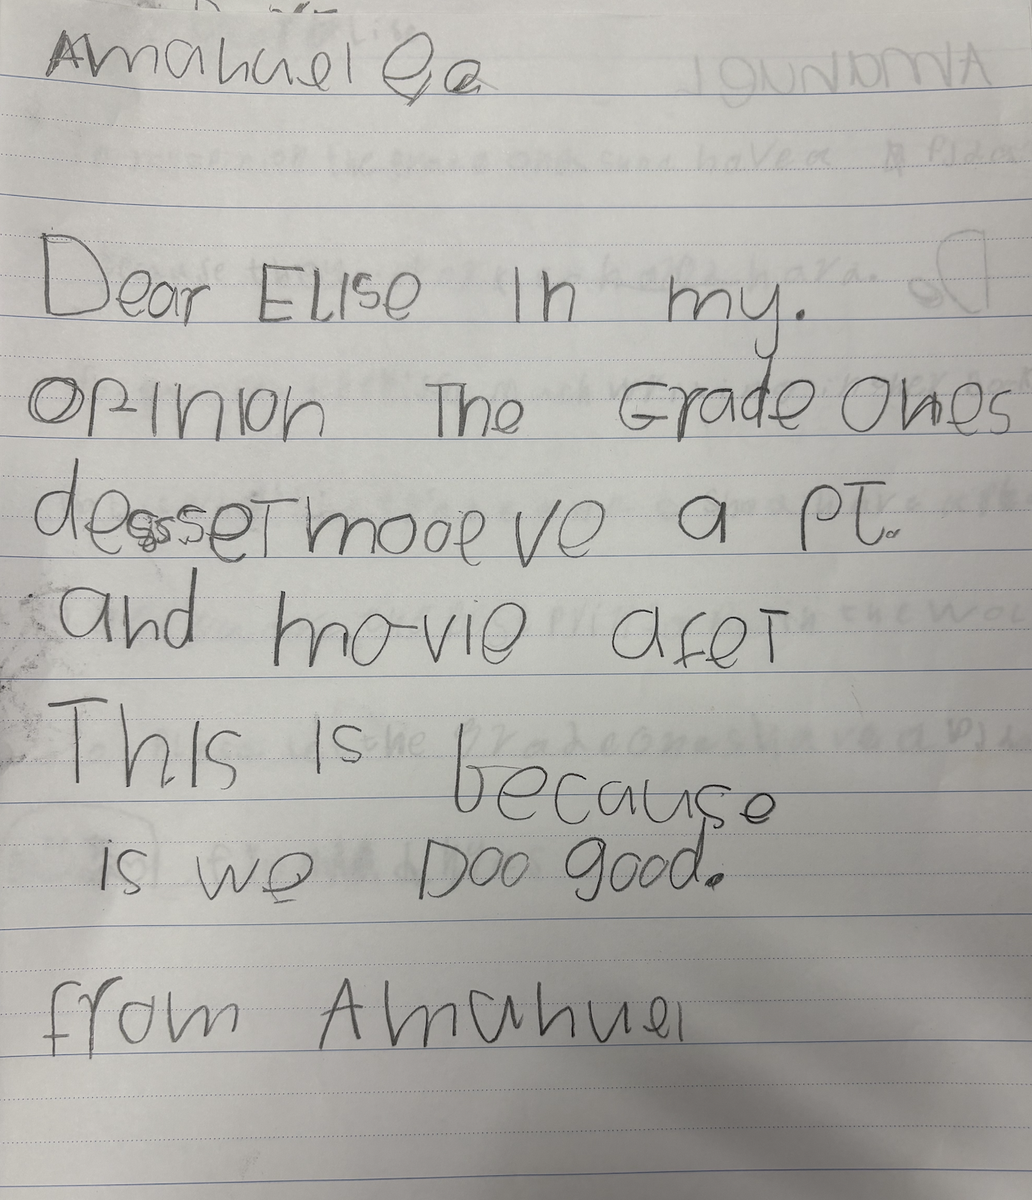 Amanuel Ga
Dear ELise In my.
OPInIon The Grade Ones
dessset mooeve a PT.
and movie afeT
This is because
is we Doo good.
from Amanuel